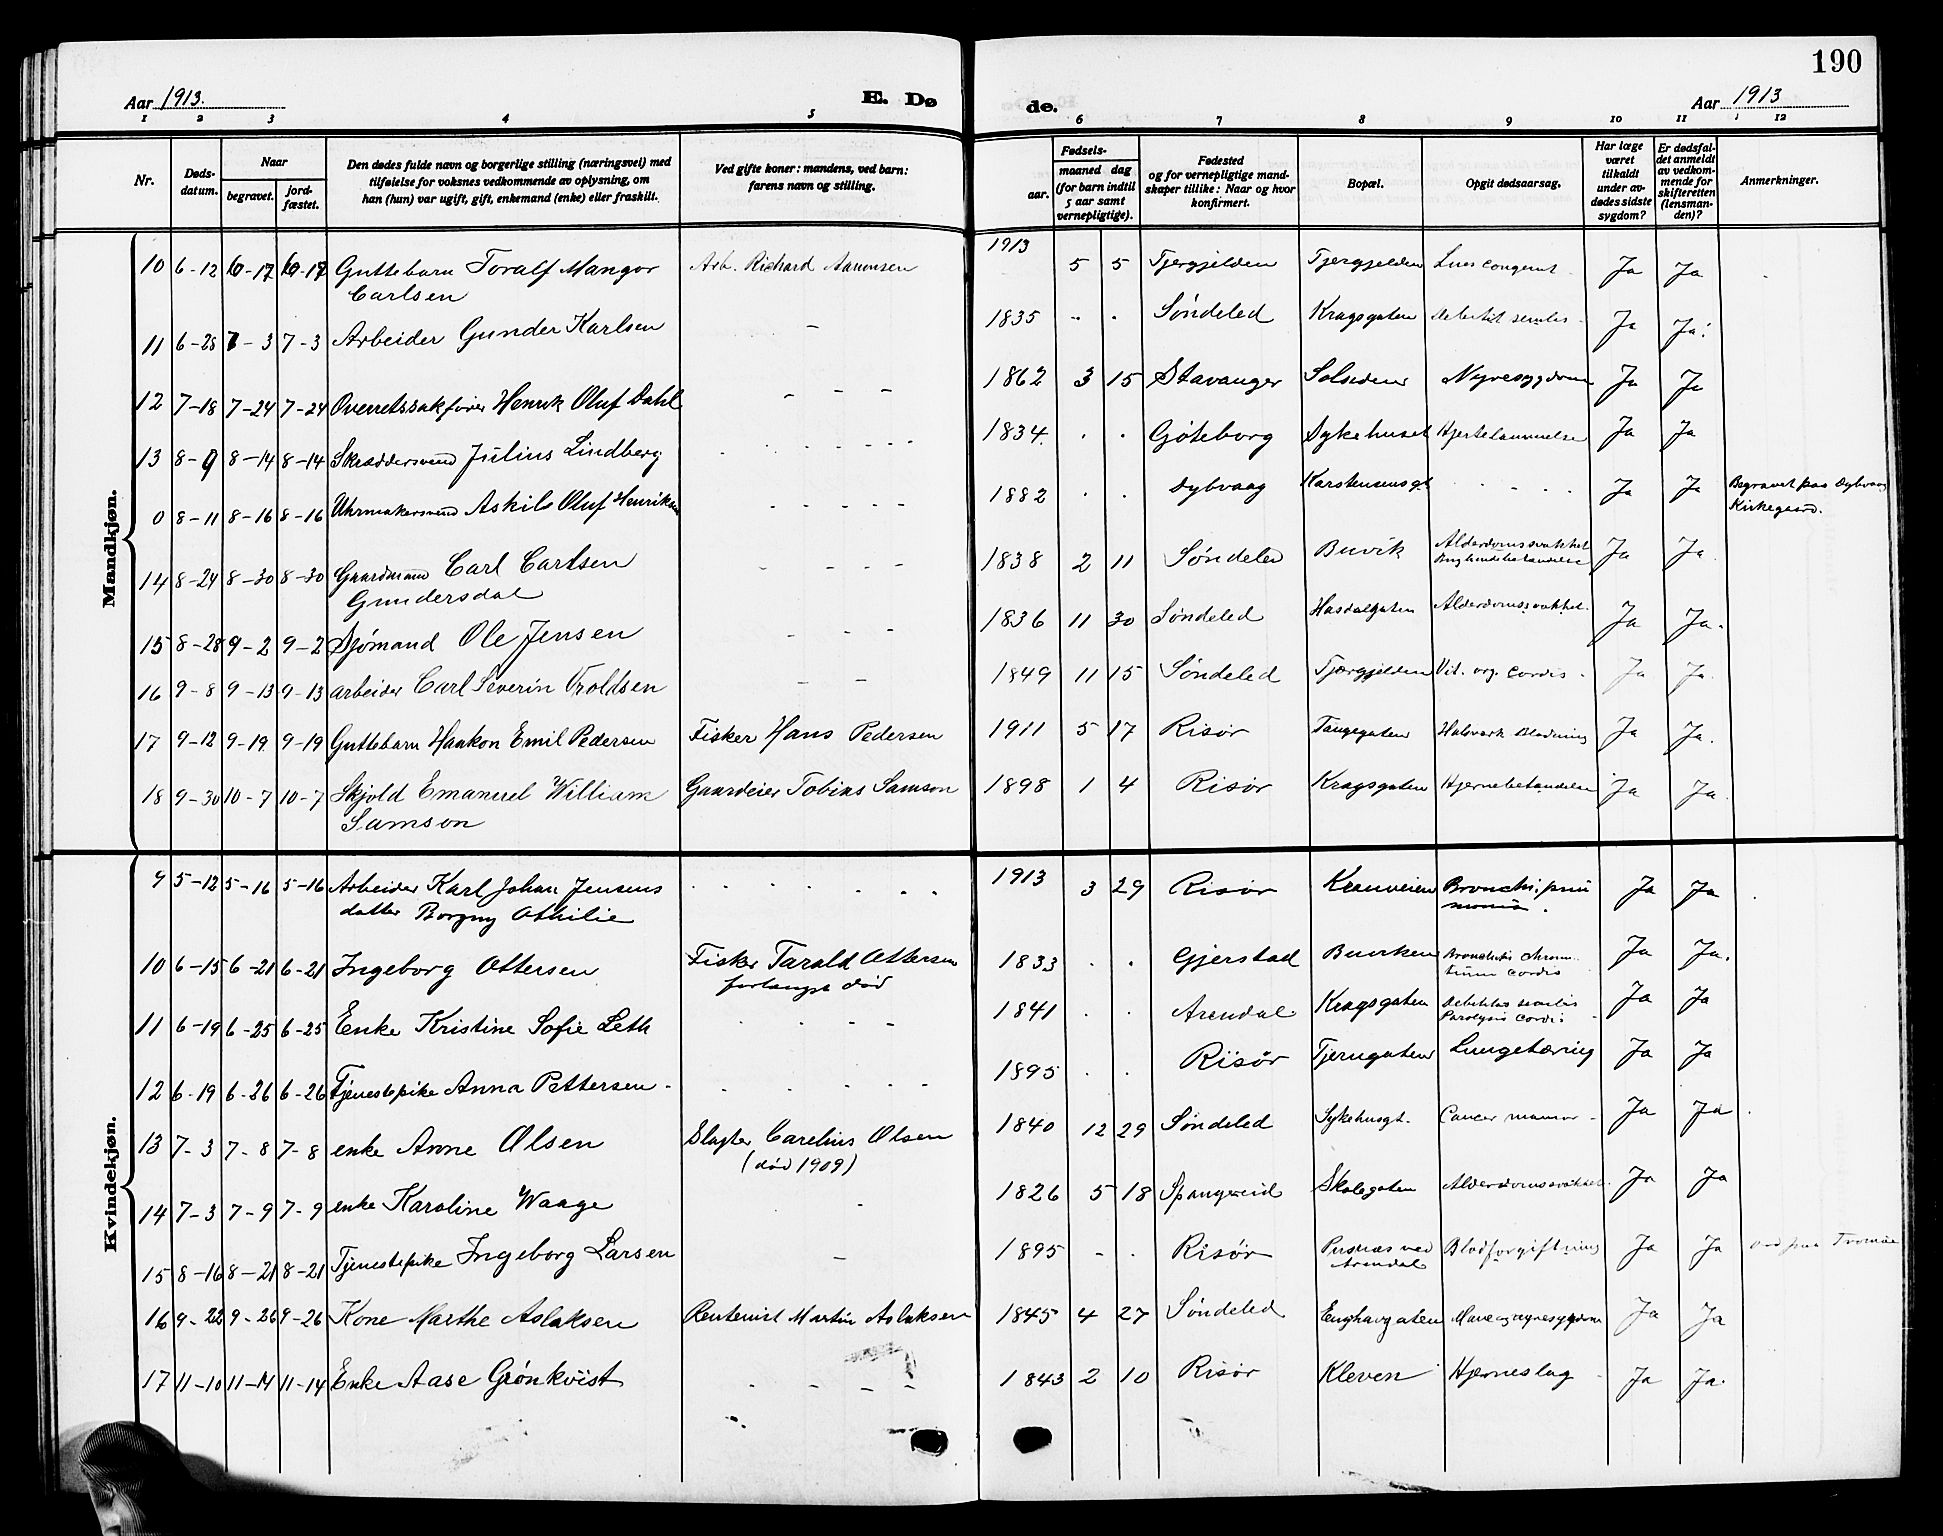 190
Aar 1913. E. Døde. Aar 1913
1 2 3 4 5 6 7 8 9 10 11 12
Nr. | Døds-datum. | Naar begravet. | jord-fæstet. | Den dødes fulde navn og borgerlige stilling (næringsvei) med tilføielse for voksnes vedkommende av oplysning, om han (hun) var ugift, gift, enkemand (enke) eller fraskilt. | Ved gifte koner: mandens, ved barn: farens navn og stilling. | Fødsels- aar. | maaned dag (for barn indtil 5 aar samt vernepligtige). | Fødested og for vernepligtige mandskaper tillike: Naar og hvor konfirmert. | Bopæl. | Opgit dødsaarsag. | Har læge været tilkaldt under avdødes sidste sygdom? | Er dødsfaldet anmeldt av vedkommende for skifteretten (lensmanden)? | Anmerkninger.
Mandkjøn.
10 6-12 6-17 6-17 Guttebarn Toralf Mangor Carlsen | Arb. Richard | 1913 5 5 Tjergjelden Tjergjelden Ja Ja
11 6-28 7-3 7-3 Arbeider Gunder Karlsen - | 1835 - . Søndeled Kragsgaten Ja Ja.
12 7-18 7-24 7-24 Overretssakfører Henrik Oluf Dahl - - - | 1862 3 15 Stavanger Solsiden Nyresygdom Ja Ja
13 8-9 8-14 8-14 Skræddersvend Julius Lindberg | 1834. . . Gøteborg Sykehuset Hjertelammelse Ja Ja
0 8-11 8-16 8-16 Uhrmakersvend Askild Oluf Henriksen | 1882 . . Dybvaag Karstensensgt - - - - Ja Ja Begravet paa Dybvaag Kirkegaard.
14 8-24 8-30 8-30 Gaardmand Carl Carlsen Gundersdal | 1838 2 11 Søndeled Buvik Alderdomssvakhet Ja Ja
15 8-28 9-2 9-2 Sjømand Ole Jensen - - - | 1836 11 30 Søndeled Hasdalgaten Alderdomssvakhet. Ja Ja.
16 9-8 9-13 9-13 arbeider Carl Severin Troldsen - - - | 1849 11 15 Søndeled Tjærgjelden Vit. org. cordis Ja Ja.
17 9-12 9-19 9-19 Guttebarn Haakon Emil Pedersen | Fisker Hans Pedersen | 1911 5 17 Risør Tangegaten Ja Ja.
18 9-30 10-7 10-7 Skjold Emanuel William Samson | Gaardeier Tobias Samson | 1898 1 4 Risør Kragsgaten Hjernebetændelse Ja Ja
Kvindekjøn.
9 5-12 5-16 5-16 Arbeider Karl Johan Jensens datter Borgny Othilie | 1913 3 29 Risør Kranveien Ja Ja
10 6-15 6-21 6-21 Ingeborg Ottersen | Fisker Tarald Ottersen forlængst død | 1833 . . Gjerstad Buviken Ja Ja.
11 6-19 6-25 6-25 Enke Kristine Sofie Leth | 1841 . . Arendal Kragsgaten Debilitas senilis Paralysis cordis Ja Ja
12 6-19 6-26 6-26 Tjenestepike Anna Pettersen | 1895 . . Risør Tjerngaten Lungetæring Ja Ja
13 7-3 7-8 7-8 enke Anne Olsen | Slagter Carelius Olsen (død 1909) | 1840 12 29 Søndeled Sykehusgt. Cancer mamar Ja Ja
14 7-3 7-9 7-9 enke Karoline Waage - | 1826 5 18 Spangereid Skolegaten Alderdomssvakhet. Ja Ja
15 8-16 8-21 8-21 Tjenestepike Ingeborg Larsen - | 1895 - . Risør Pusnæs ved Arendal Blodforgiftning Ja Ja
16 9-22 9-26 9-26 Kone Marthe Aslaksen | Rentenist Martin Aslaksen | 1845 4 27 Søndeled Enghavgaten Mave og nyresygdom Ja Ja
17 11-10 11-14 11-14 Enke Aase Grønkvist | 1843 2 10 Risør Kleven Hjerneslag Ja Ja.